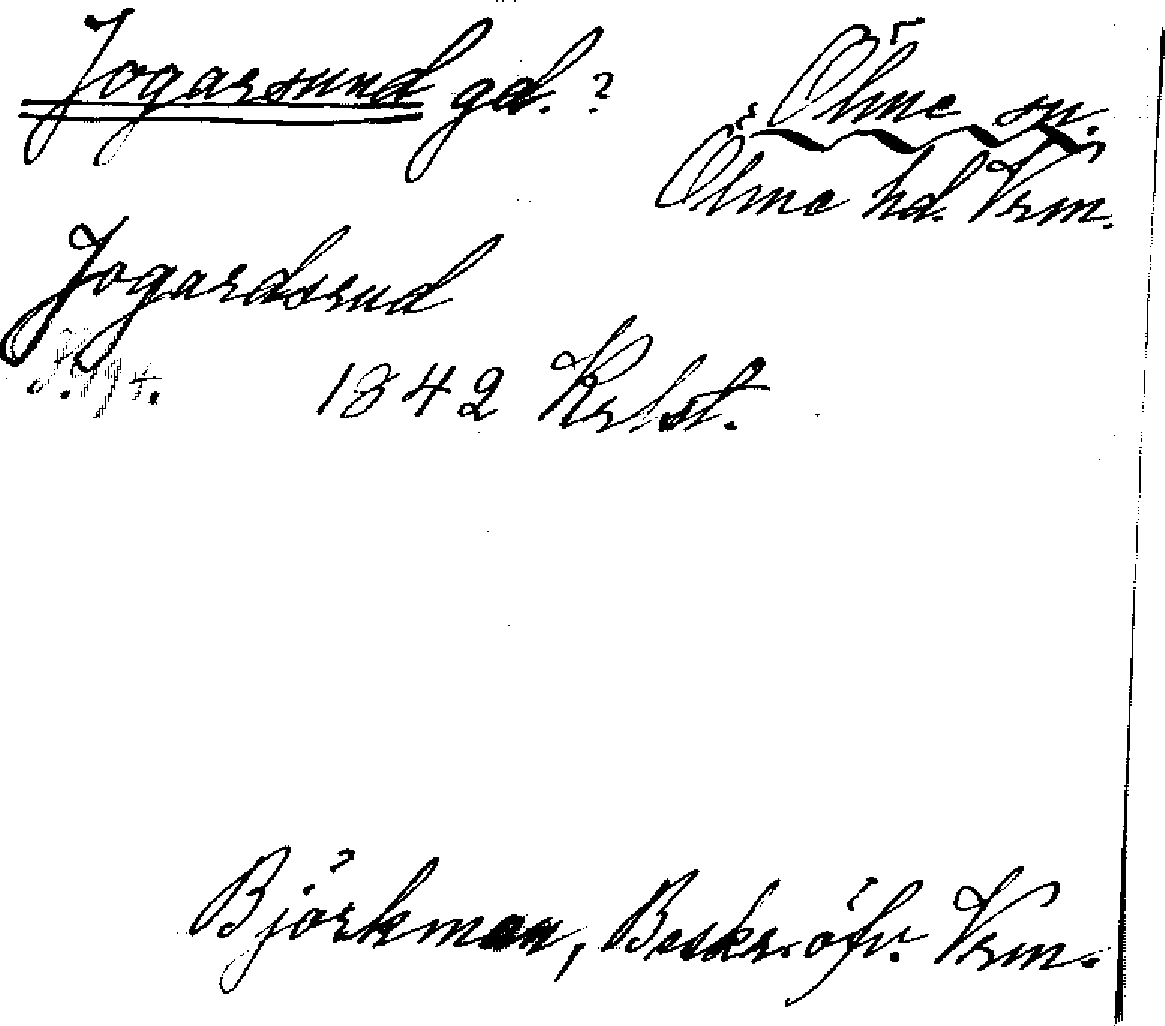 Jogarsund gd.?
Ölme sn.
Ölme hd. Vrm.
Jogardsrud
S. 94.
1842 Krlst.
Björkman, Beskr. öfv. Vrm.